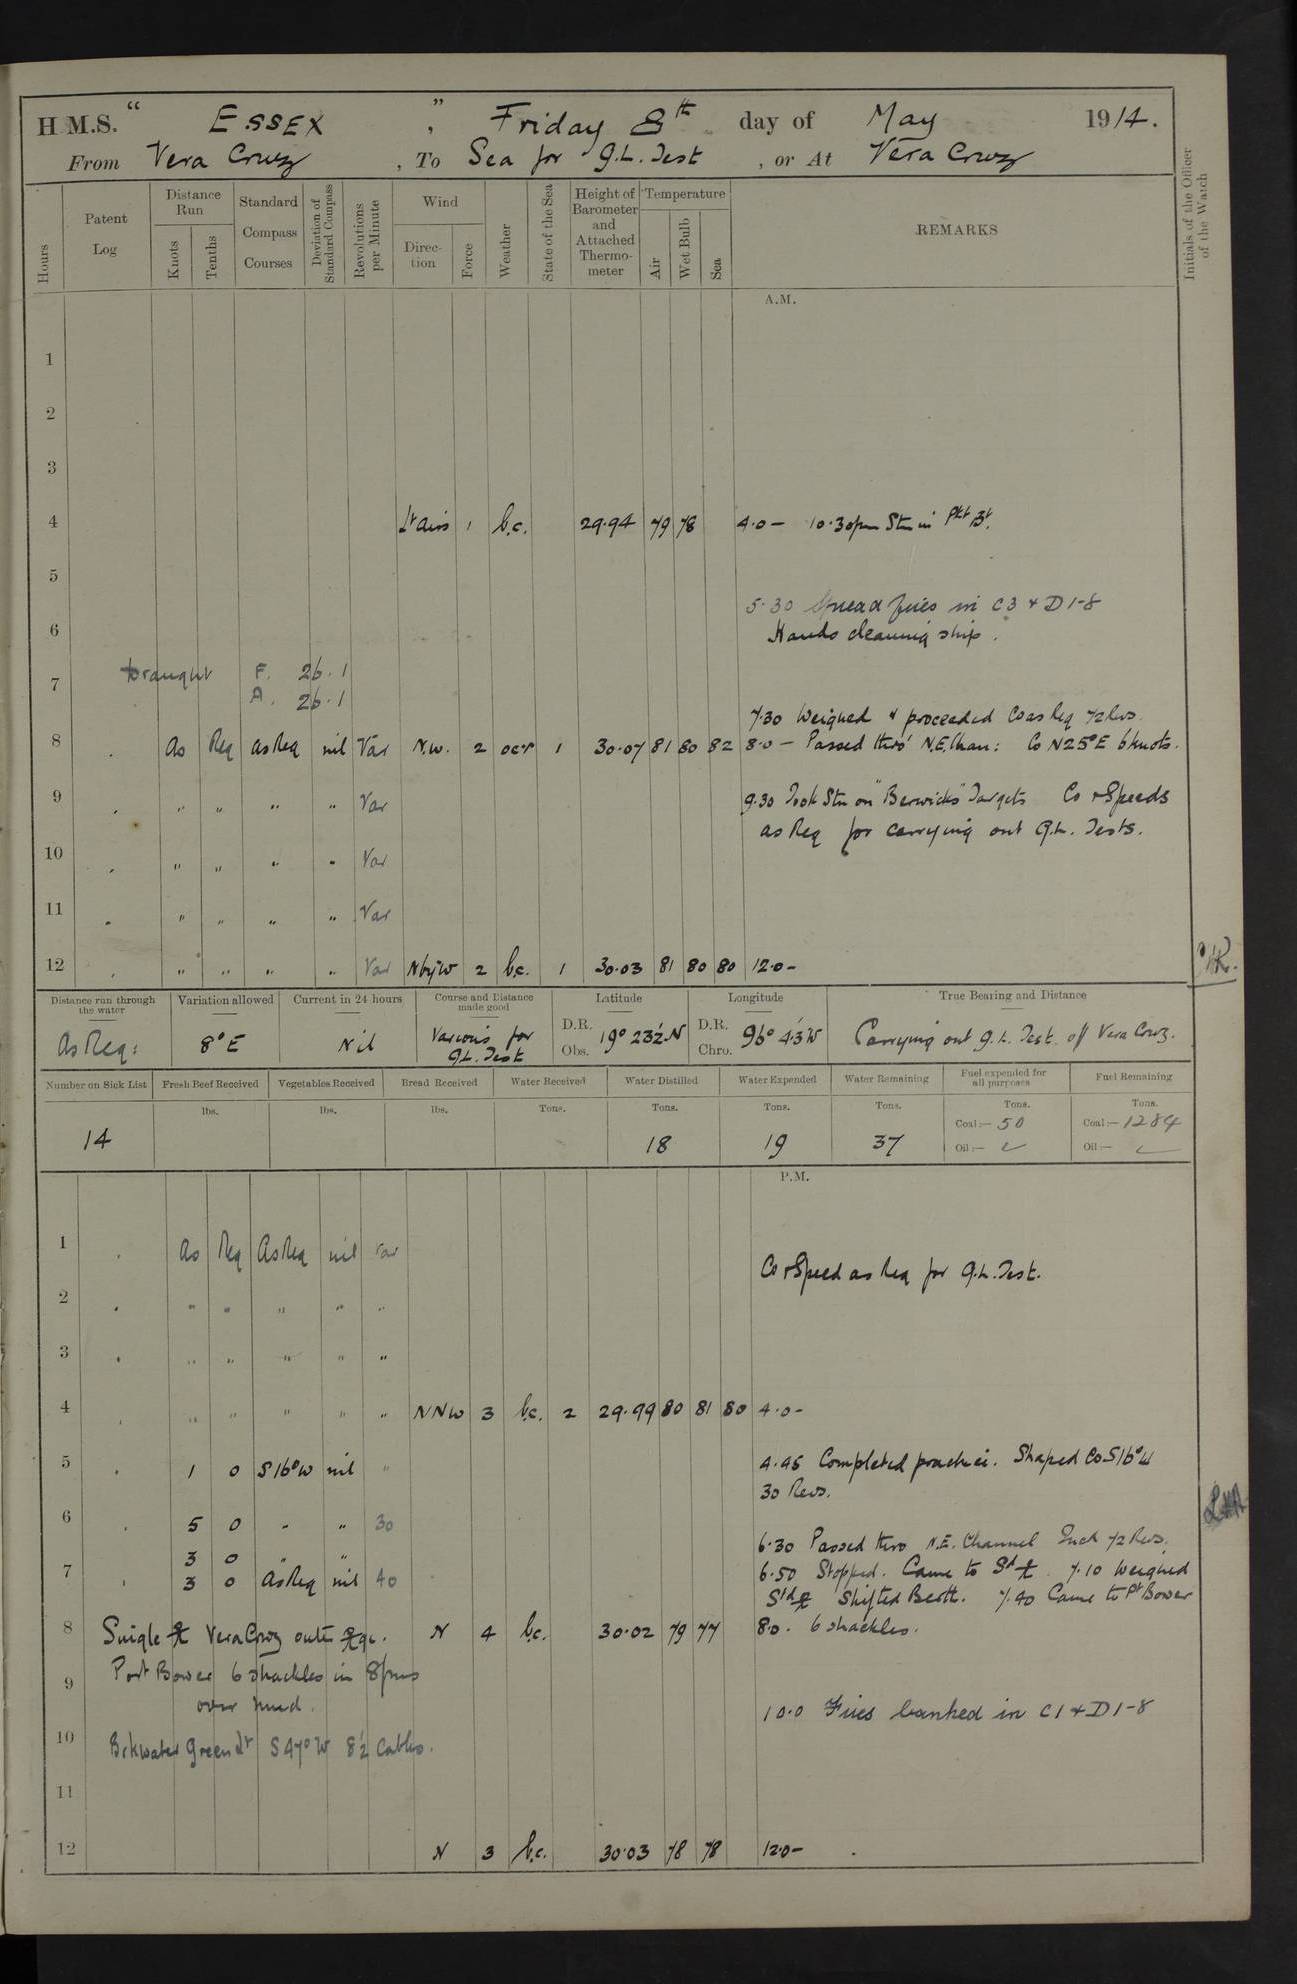 H.M.S. " ESSEX ", Friday 8th day of May 1914.
From Vera Cruz, To Sea for G.L. Test, or At Vera Cruz
Hours
Patent Log
Distance Run
Knots
Tenths
Standard Compass Courses
Deviation of Standard Compass
Revolutions per Minute
Wind
Direction
Force
Weather
State of the Sea
Height of Barometer and Attached Thermometer
Temperature
Air
Wet Bulb
Sea
REMARKS
Initials of the Officer of the Watch
A.M.
1
2
3
4 Lt airs 1 b.c. 29.94 79 78 4.0 – 10.30pm Stm in Pkt Bt.
5
5.30 Spread fires in C3 & D1-8
6 Hands cleaning ship.
Draught F. 26.1
7 A. 26.1
7.30 Weighed & proceeded Co as Req 72 Revs.
8 . As Req as Req nil Var N.W. 2 ocr 1 30.07 81 80 82 8.0 – Passed thro' N.E. Chan: Co N25°E 6 knots.
9 . " " " " Var 9.30 Took Stn on "Berwicks" Targets Co & Speeds
as Req for carrying out G.L. Tests.
10 . " " " " Var
11 . " " " " Var
12 . " " " " Var N by W 2 b.c. 1 30.03 81 80 80 12.0 –
Distance run through the water
Variation allowed
Current in 24 hours
Course and Distance made good
Latitude
Longitude
True Bearing and Distance
As Req: 8°E Nil Various for G.L. Test D.R. Obs. 19° 23½' N D.R. Chro. 96° 4.3' W Carrying out G.L. Test. off Vera Cruz.
Number on Sick List
Fresh Beef Received
Vegetables Received
Bread Received
Water Received
Water Distilled
Water Expended
Water Remaining
Fuel expended for all purposes
Fuel Remaining
lbs. lbs. lbs. Tons. Tons. Tons. Tons. Tons. Tons.
14 18 19 37 Coal:– 50 Coal:– 1284
Oil:– Oil:–
P.M.
1 . As Req As Req nil Var
Co & Speed as Req for G.L. Test.
2 . " " " " "
3 . " " " " "
4 . " " " " " NNW 3 b.c. 2 29.99 80 81 80 4.0 –
5 . 1 0 S16°W nil " 4.45 Completed practice. Shaped Co S16°W
30 Revs.
6 . 5 0 " " 30
3 0 " " 6.30 Passed thro N.E. Channel Incd 72 Revs.
7 . 3 0 As Req nil 40 6.50 Stopped. Came to Sd ⚓. 7.10 Weighed
Std ⚓ Shifted Berth. 7.40 Came to Pt Bower
8 Single ⚓ Vera Cruz outer ⚓ge. N 4 b.c. 30.02 79 77 8.0. 6 shackles.
Port Bower 6 shackles in 8 fms
9 over mud.
10.0 Fires banked in C1 & D1-8
10 Bkwater Green Lt S47°W 8½ Cables.
11
12 N 3 b.c. 30.03 78 78 12.0 –